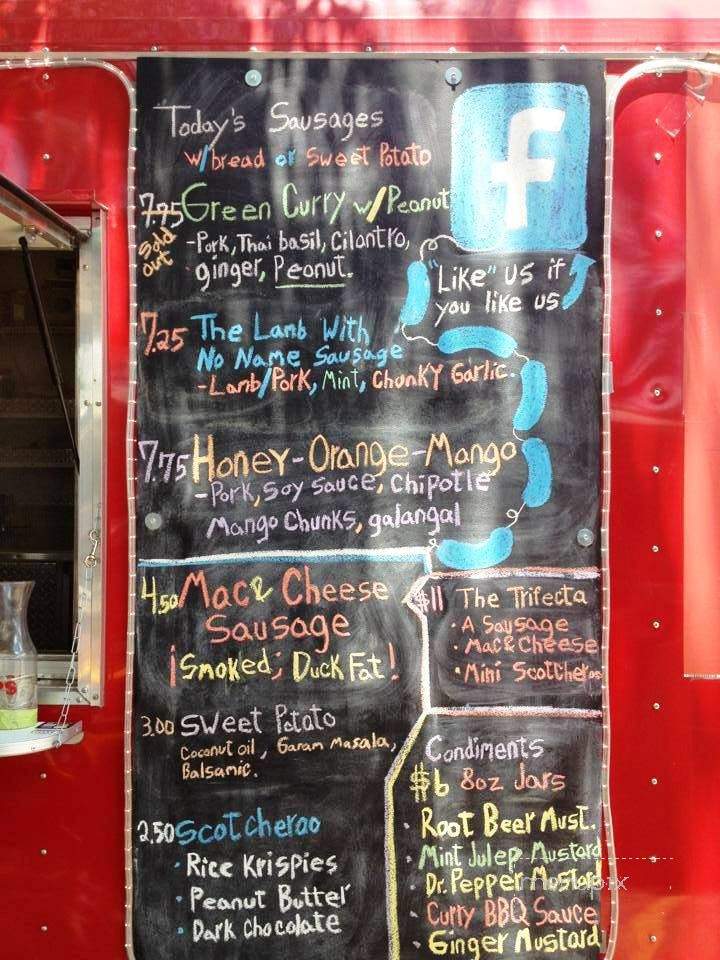 Today's Sausages
w/bread or Sweet Potato
f
7.95 Green Curry w/Peanut
Sold out
-Pork, Thai basil, Cilantro,
ginger, Peanut.
"Like" us if
you like us
7.25 The Lamb With
No Name Sausage
-Lamb/Pork, Mint, Chunky Garlic.
7.75 Honey-Orange-Mango
-Pork, Soy Sauce, Chipotle
Mango Chunks, galangal
4.50 Mac & Cheese
Sausage
¡Smoked; Duck Fat!
$11 The Trifecta
• A Sausage
• Mac & Cheese
• Mini Scotcheroo
3.00 Sweet Potato
Coconut oil, Garam Masala,
Balsamic.
2.50 Scotcheroo
• Rice Krispies
• Peanut Butter
• Dark Chocolate
Condiments
$6 8oz Jars
• Root Beer Must.
• Mint Julep Mustard
• Dr. Pepper Mustard
• Curry BBQ Sauce
• Ginger Mustard